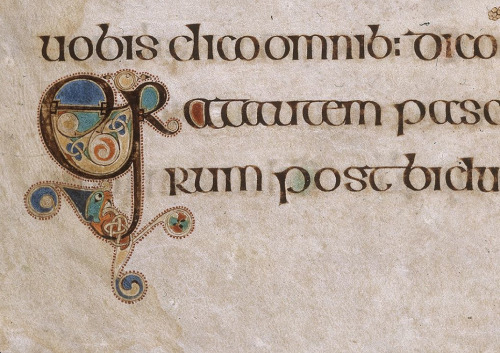 uobis dico omnib: dico
ERat autem pasc
rum post bidu